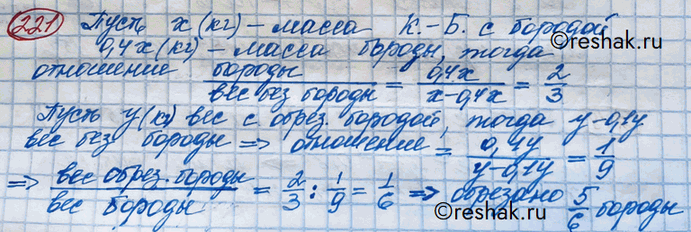 221 Пусть x (кг) – масса К.-Б. с бородой
0,4x (кг) – масса бороды, тогда
отношение бороды / вес без бороды = 0,4x / x-0,4x = 2/3
Пусть y (кг) вес с обрез. бородой, тогда y-0,1y
вес без бороды => отношение = 0,1y / y-0,1y = 1/9
=> вес обрез. бороды / вес бороды = 2/3 : 1/9 = 1/6 => обрезано 5/6 бороды
©reshak.ru
©reshak.ru